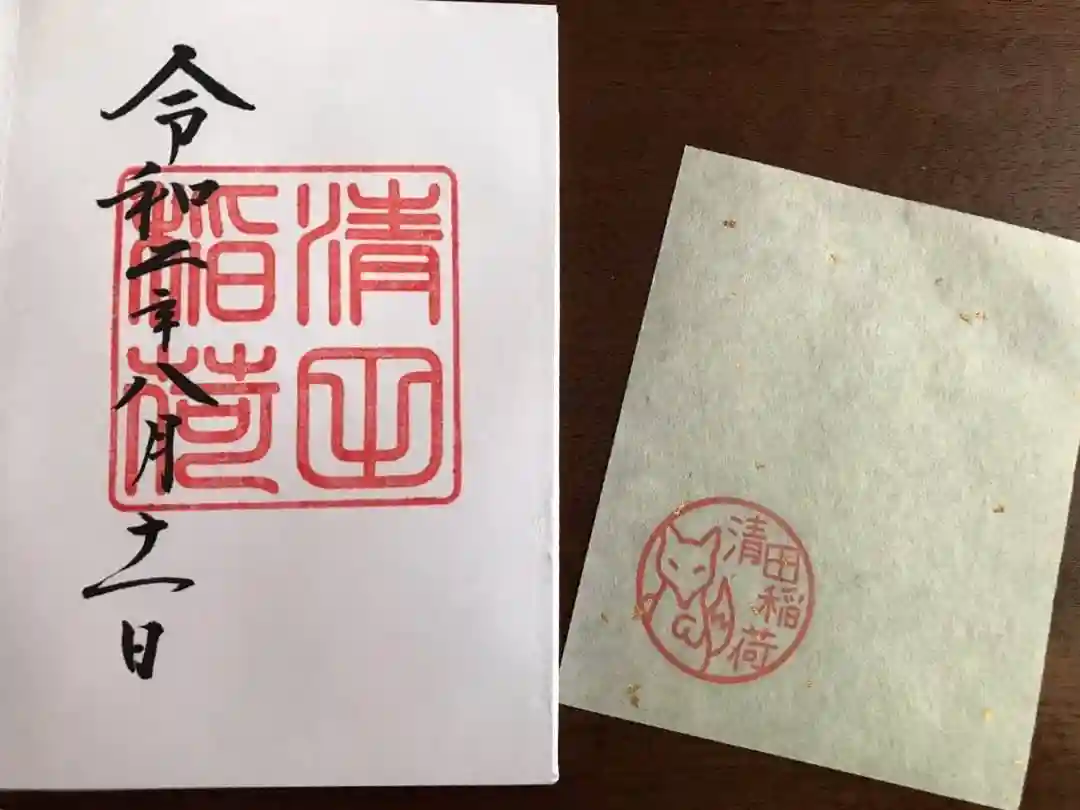 令和二年八月十一日
清田
稲荷
清田稲荷